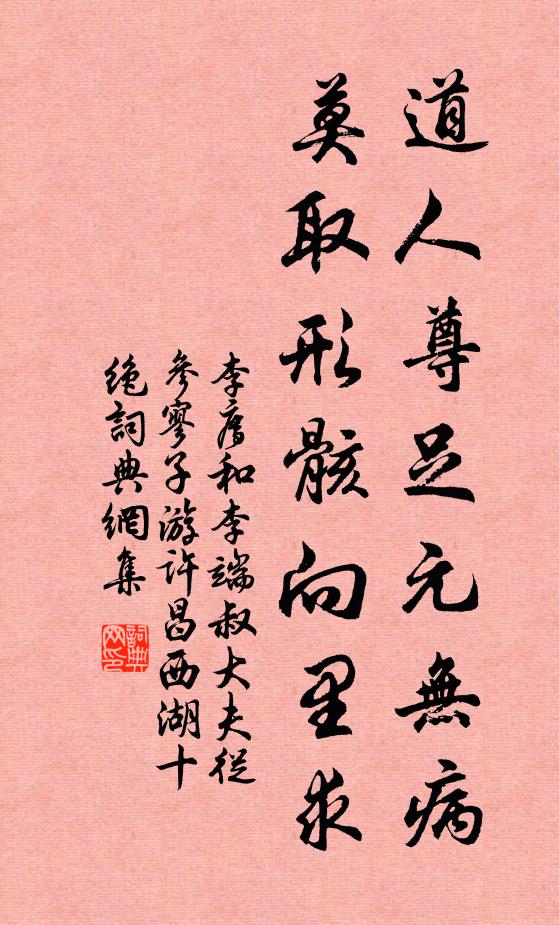 道人尊足元無病
莫取形骸向里求
李廌和李端叔大夫從
參寥子游許昌西湖十
絶詞典網集
詞典网印